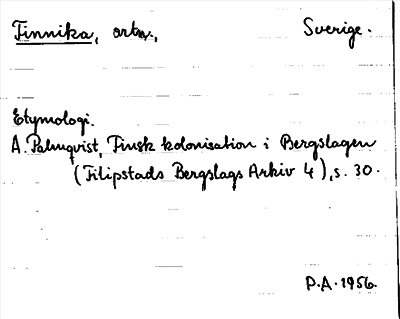 Finnika, ortn., Sverige.
Etymologi.
A. Palmqvist, Finsk kolonisation i Bergslagen
(Filipstads Bergslags Arkiv 4), s. 30.
P.A. 1956